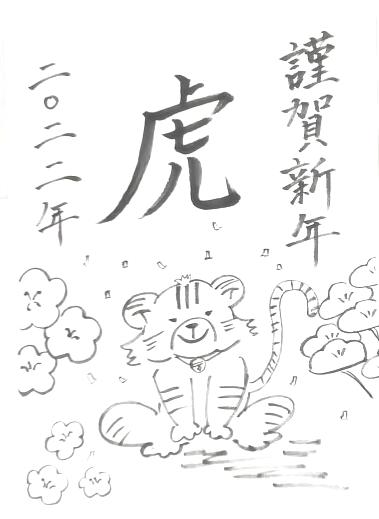 謹賀新年
虎
二〇二二年